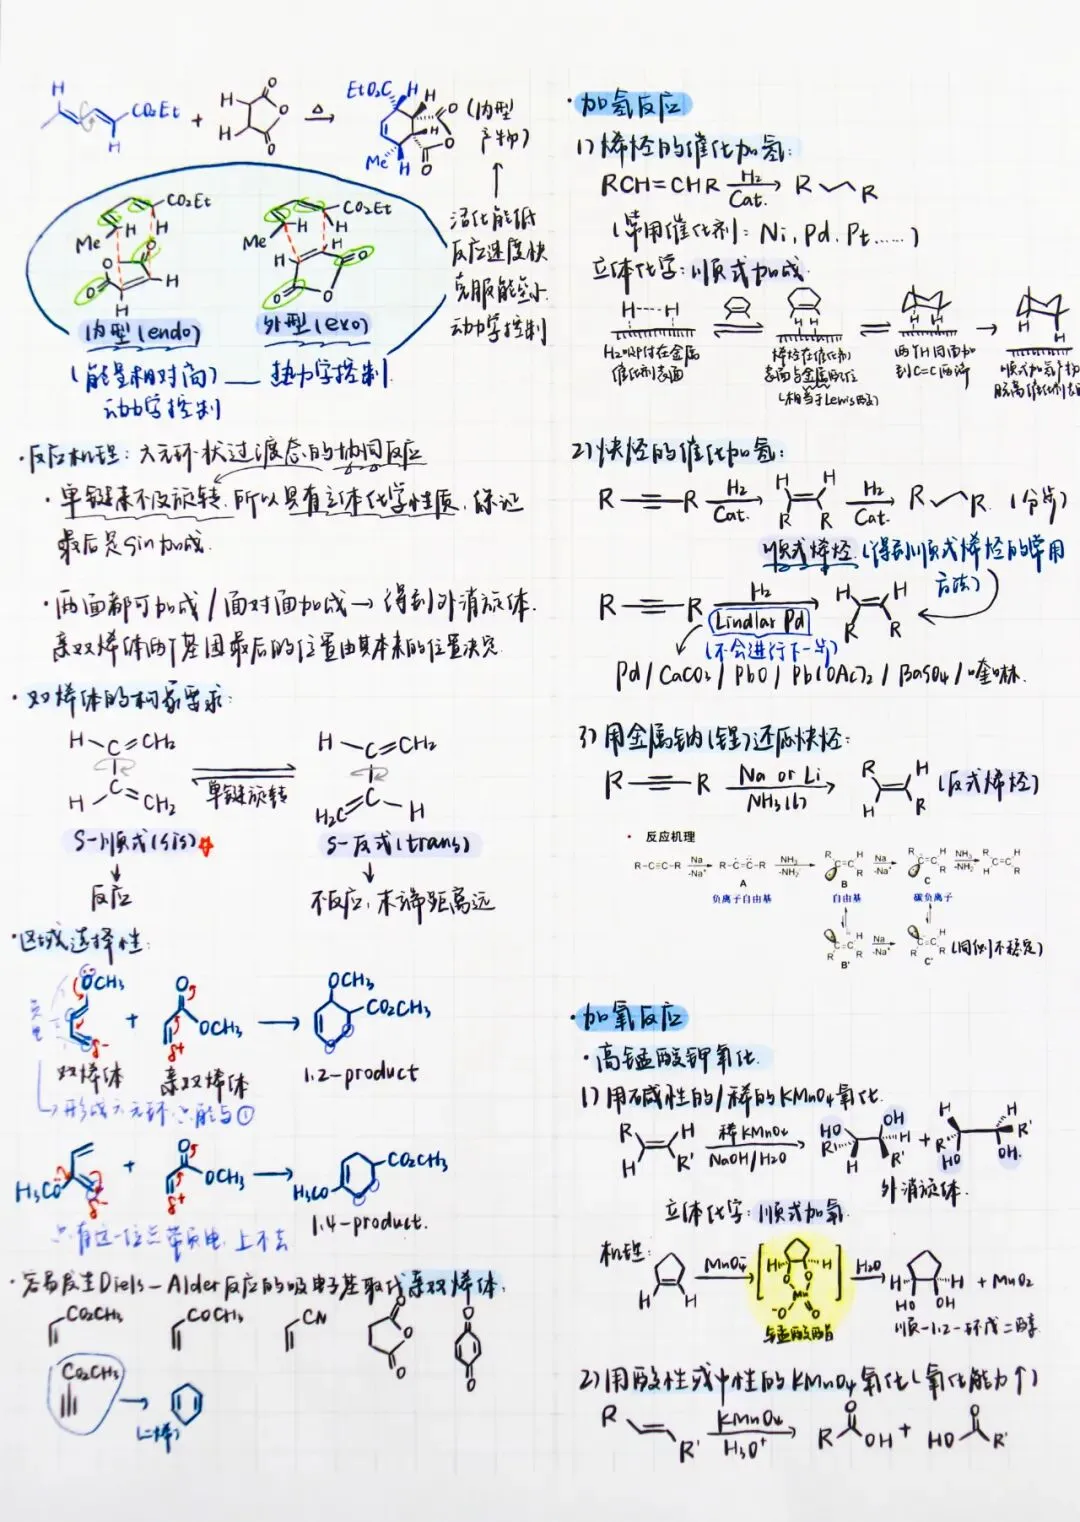 H
CO₂Et
H
+
H
H
O
O
O
△
EtO₂C
H
H
H
O
O
O
Me
H
(内型
产物)
CO₂Et
Me
H
H
O
O
O
H
H
内型(endo)
CO₂Et
Me
H
H
H
H
O
O
O
外型(exo)
(能量相对高)
动力学控制
热力学控制
活化能低
反应速度快
克服能垒小
动力学控制
·反应机理：六元环状过渡态的协同反应
·单键来不及旋转，所以具有立体化学性质，保证
最后是sin加成.
·两面都可加成/面对面加成→得到外消旋体.
亲双烯体两个基团最后的位置由其本来的位置决定.
·双烯体的构象要求:
H
C=CH₂
H
C=CH₂
单键旋转
H
C=CH₂
H₂C=C
H
S-顺式(sis)
S-反式(trans)
反应
不反应，末端距离远
·区域选择性:
OCH₃
δ-
+
O
OCH₃
δ+
OCH₃
CO₂CH₃
双烯体
亲双烯体
1.2-product
形成六元环只能与①
H₃CO
δ-
+
O
OCH₃
δ+
H₃CO
CO₂CH₃
1.4-product.
·容易发生Diels-Alder反应的吸电子基取代亲双烯体:
CO₂CH₃
COCH₃
CN
O
O
O
O
O
CO₂CH₃
(二烯)
·加氢反应
1)烯烃的催化加氢:
RCH=CHR
H₂
Cat.
R
R
(常用催化剂：Ni, Pd, Pt……)
立体化学：顺式加成.
H---H
H H
H H
H
H
H₂吸附在金属
催化剂表面
烯烃在催化剂
表面与金属配位
(相当于Lewis酸)
两个H同面加
到C=C两端
顺式加氢产物
脱离催化剂表面
2)炔烃的催化加氢:
R≡R
H₂
Cat.
H
H
R
R
H₂
Cat.
R
R
(分步)
顺式烯烃.
(得到顺式烯烃的常用
方法)
R≡R
H₂
Lindlar Pd
H
H
R
R
(不会进行下一步)
Pd/CaCO₃/PbO/Pb(OAc)₂/BaSO₄/喹啉.
3)用金属钠(锂)还原炔烃:
R≡R
Na or Li
NH₃(l)
R
H
H
R
(反式烯烃)
• 反应机理
R-C≡C-R
Na
-Na⁺
R-C=C-R
A
NH₃
-NH₂⁻
R
H
C=C
R
B
Na
-Na⁺
R
H
C=C
R
C
NH₃
-NH₂⁻
R
H
C=C
H
R
负离子自由基
自由基
碳负离子
C=C
H
R
R
B'
Na
-Na⁺
C=C
H
R
R
C'
(同侧不稳定)
·加氧反应
·高锰酸钾氧化.
1)用碱性的/稀的KMnO₄氧化.
R
H
H
R'
稀KMnO₄
NaOH/H₂O
HO
OH
R
H
H
R'
+
H
H
R
R'
HO
OH.
外消旋体.
立体化学：顺式加氧.
机理:
H
H
MnO₄⁻
H
H
O
O
Mn
⁻O
O
H₂O
H
H
HO
OH
+ MnO₂
锰酸酯
顺-1.2-环戊二醇.
2)用酸性或中性的KMnO₄氧化(氧化能力↑)
R
R'
KMnO₄
H₃O⁺
O
R
OH
+
O
HO
R'